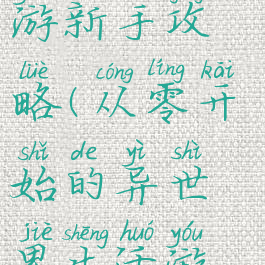 游新手攻
lüè cóng líng kāi
略(从零开
shǐ de yì shì
始的异世
jiè shēng huó yóu
界生活游